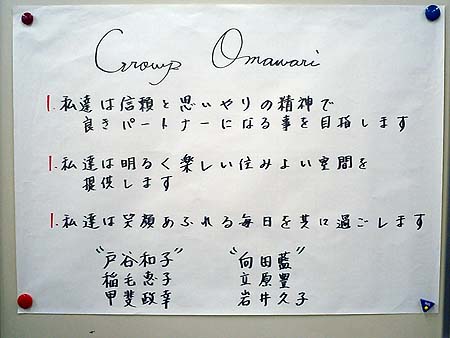 Group Omawari
1.私達は信頼と思いやりの精神で
良きパートナーになる事を目指します
1.私達は明るく楽しい住みよい空間を
提供します
1.私達は笑顔あふれる毎日を共に過ごします
"戸谷和子" "向田藍"
稲毛惠子 立原豊
甲斐政幸 岩井久子